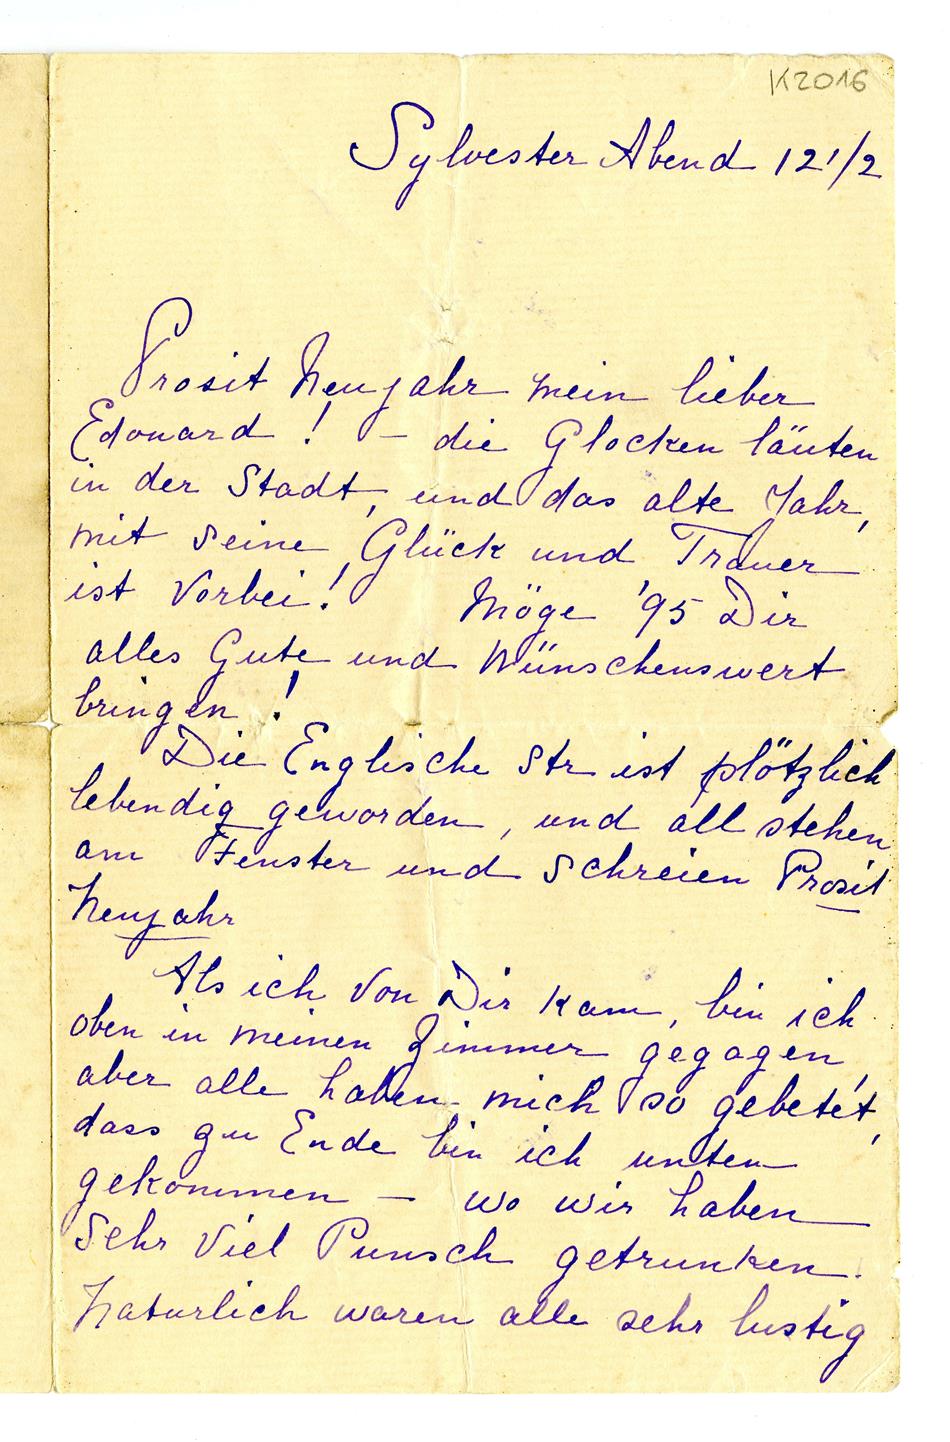 K2016
Sylvester Abend 12 1/2
Prosit Neujahr mein lieber
Edouard! – die Glocken läuten
in der Stadt, und das alte Jahr,
mit seine Glück und Trauer
ist vorbei! Möge '95 Dir
alles Gute und Wünschenswert
bringen!
Die Englische Str ist plötzlich
lebendig geworden, und all stehen
am Fenster und schreien Prosit
Neujahr
Als ich von Dir kam, bin ich
oben in meinen Zimmer gegagen,
aber alle haben mich so gebetet,
dass zu Ende bin ich unten
gekommen – wo wir haben
sehr viel Punsch getrunken.
Naturlich waren alle sehr lustig